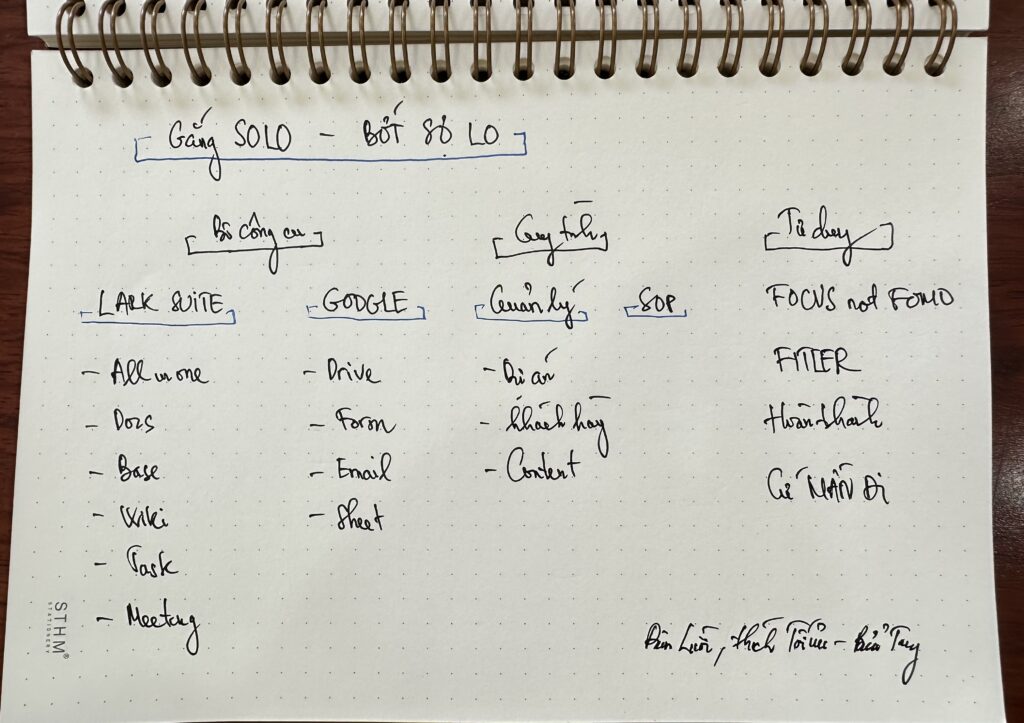 Gắng SOLO - BỚT SỢ LO
Bộ công cụ
Quy trình
Tư duy
LARK SUITE
GOOGLE
Quản lý
SOP
FOCUS not FOMO
- All in one
- Drive
- Dự án
FILTER
- Docs
- Form
- Khách hàng
Hoàn thành
- Base
- Email
- Content
Cứ MẦN Đi
- Wiki
- Sheet
- Task
- Meeting
thích Tối ưu -
STHM®
STATIONERY